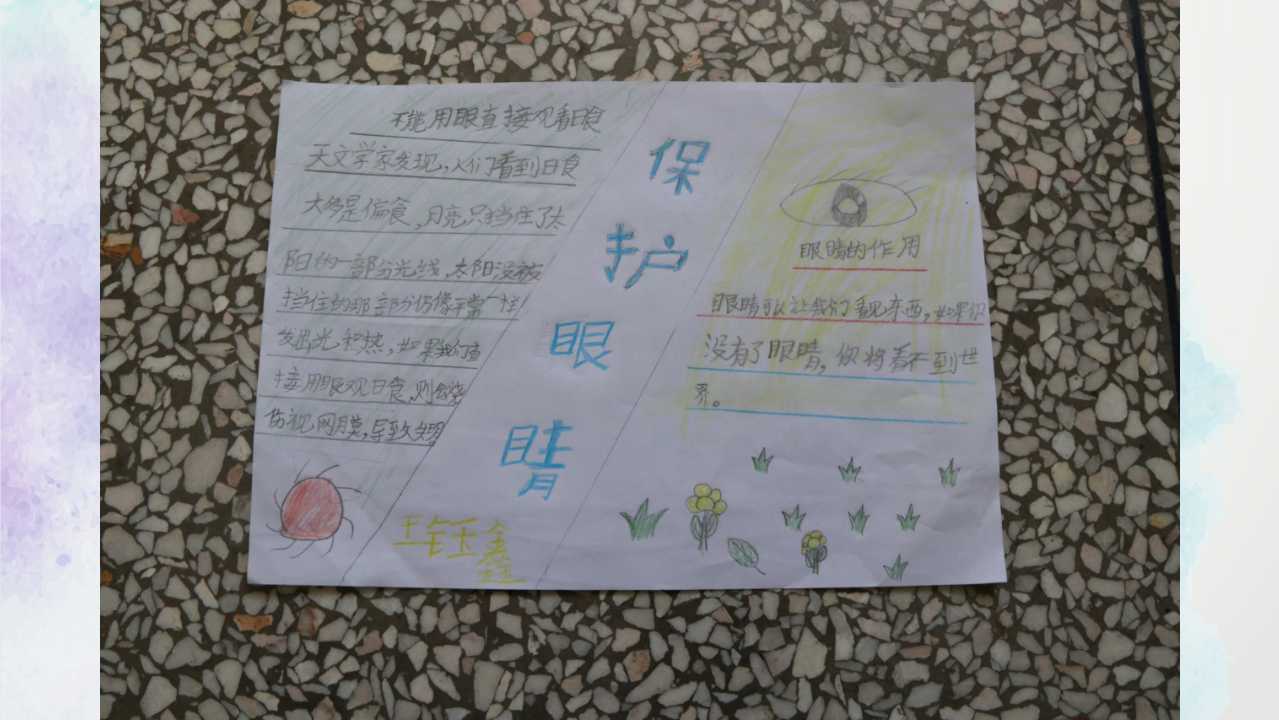 不能用眼直接观看日食
天文学家发现,人们看到日食
大多是偏食,月亮只挡住了太
阳的一部分光线,太阳没被
挡住的那部分仍像平常一样
发出光和热,如果我们直
接用眼观日食,则会烧
伤视网膜,导致失明
保
护
眼
睛
眼睛的作用
眼睛可以让我们看见东西,如果你
没有了眼睛,你将看不到世
界。
鑫